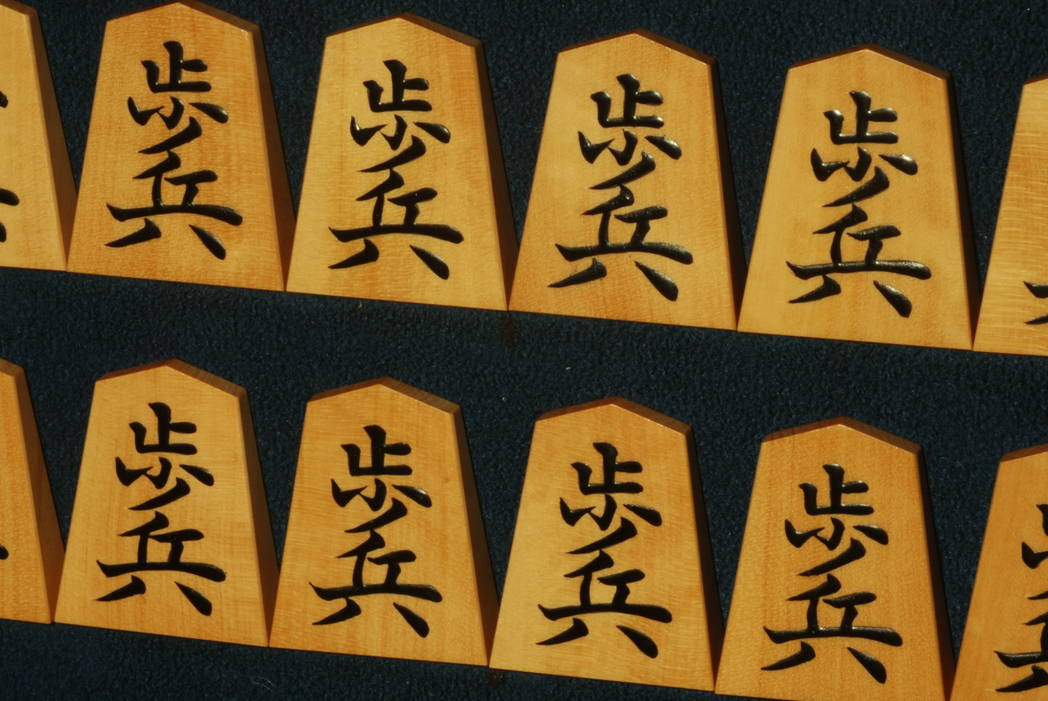 歩兵 歩兵 歩兵 歩兵
歩兵 歩兵 歩兵 歩兵